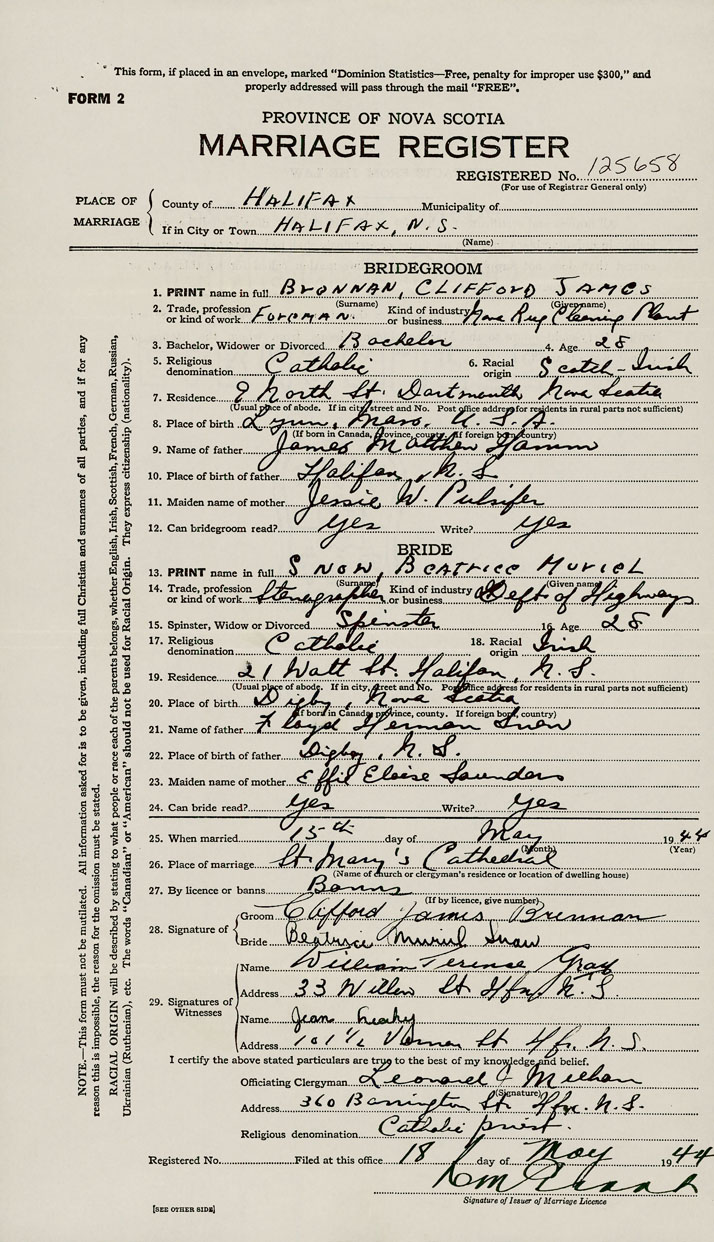 This form, if placed in an envelope, marked "Dominion Statistics—Free, penalty for improper use $300," and
properly addressed will pass through the mail "FREE".
FORM 2
PROVINCE OF NOVA SCOTIA
MARRIAGE REGISTER
REGISTERED No. 125658
(For use of Registrar General only)
PLACE OF MARRIAGE
County of HALIFAX Municipality of
If in City or Town HALIFAX, N.S.
(Name)
BRIDEGROOM
1. PRINT name in full BRENNAN, CLIFFORD JAMES
(Surname) (Given name)
2. Trade, profession or kind of work FOREMAN. Kind of industry or business Nova Rug Cleaning Plant
3. Bachelor, Widower or Divorced Bachelor 4. Age 28
5. Religious denomination Catholic 6. Racial origin Scotch-Irish
7. Residence 9 North St. Dartmouth, Nova Scotia
(Usual place of abode. If in city street and No. Post office address for residents in rural parts not sufficient)
8. Place of birth Lynn, Mass. U.S.A.
(If born in Canada, province, county. If foreign born, country)
9. Name of father James Matthew
10. Place of birth of father Halifax, N.S
11. Maiden name of mother Jessie W. Pulsifer
12. Can bridegroom read? yes Write? yes
BRIDE
13. PRINT name in full SNOW, BEATRICE MURIEL
(Surname) (Given name)
14. Trade, profession or kind of work Stenographer Kind of industry or business Dept of Highways
15. Spinster, Widow or Divorced Spinster 16. Age 28
17. Religious denomination Catholic 18. Racial origin Irish
19. Residence 21 Watt St. Halifax, N.S.
(Usual place of abode. If in city, street and No. Post office address for residents in rural parts not sufficient)
20. Place of birth Digby, Nova Scotia
(If born in Canada, province, county. If foreign born, country)
21. Name of father Floyd Herman Snow
22. Place of birth of father Digby, N.S.
23. Maiden name of mother Effie Eloise Saunders
24. Can bride read? yes Write? yes
25. When married 15th day of May 1944
(Month) (Year)
26. Place of marriage St. Mary's Cathedral
(Name of church or clergyman's residence or location of dwelling house)
27. By licence or banns Banns
(If by licence, give number)
28. Signature of
Groom Clifford James Brennan
Bride Beatrice Muriel Snow
29. Signatures of Witnesses
Name William Terence Gray
Address 33 Willow St Hfx, N.S.
Name Jean Leahy
Address 101½ Vernon St Hfx. N.S.
I certify the above stated particulars are true to the best of my knowledge and belief.
Officiating Clergyman Leonard J Meehan
(Signature)
Address 360 Barrington St. Hfx. N.S.
Religious denomination Catholic priest.
Registered No. Filed at this office 18 day of May 1944
Signature of Issuer of Marriage Licence
[SEE OTHER SIDE]
NOTE.—This form must not be mutilated. All information asked for is to be given, including full Christian and surnames of all parties, and if for any
reason this is impossible, the reason for the omission must be stated.
RACIAL ORIGIN will be described by stating to what people or race each of the parents belongs, whether English, Irish, Scottish, French, German, Russian,
Ukrainian (Ruthenian), etc. The words "Canadian" or "American" should not be used for Racial Origin. They express citizenship (nationality).